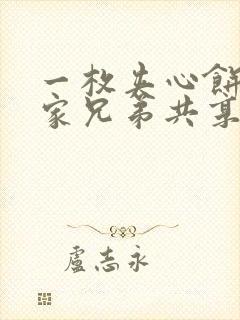 一枚夹心餅
家兄弟共享
盧志永